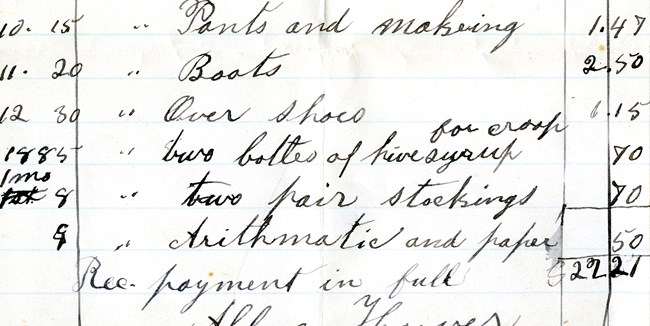 10. 15 " Pants and makeing 1.47
11. 20 " Boots 2.50
12 30 " Over shoes 1.15
for croop
1885 " two bottles of hive syrup 70
1mo
8 " two pair stockings 70
8 " Arithmatic and paper 50
Rec. payment in full $22.21